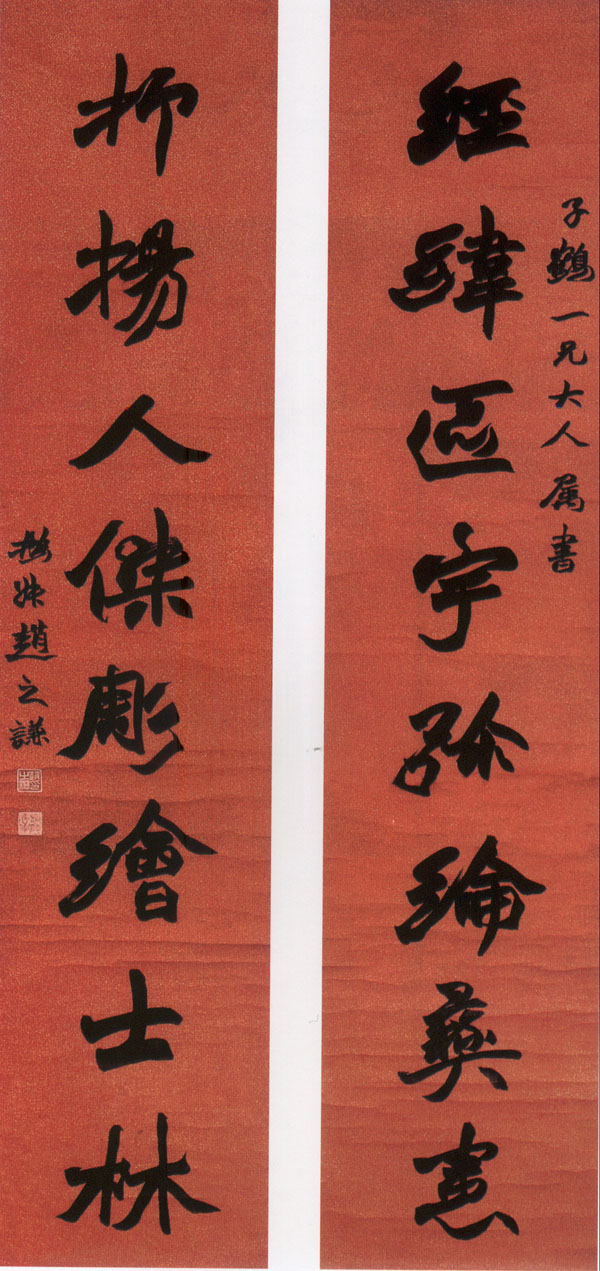 子鶴一兄大人属書
經緯區宇弥綸彝憲
抑揚人傑彫繪士林
撝叔趙之謙